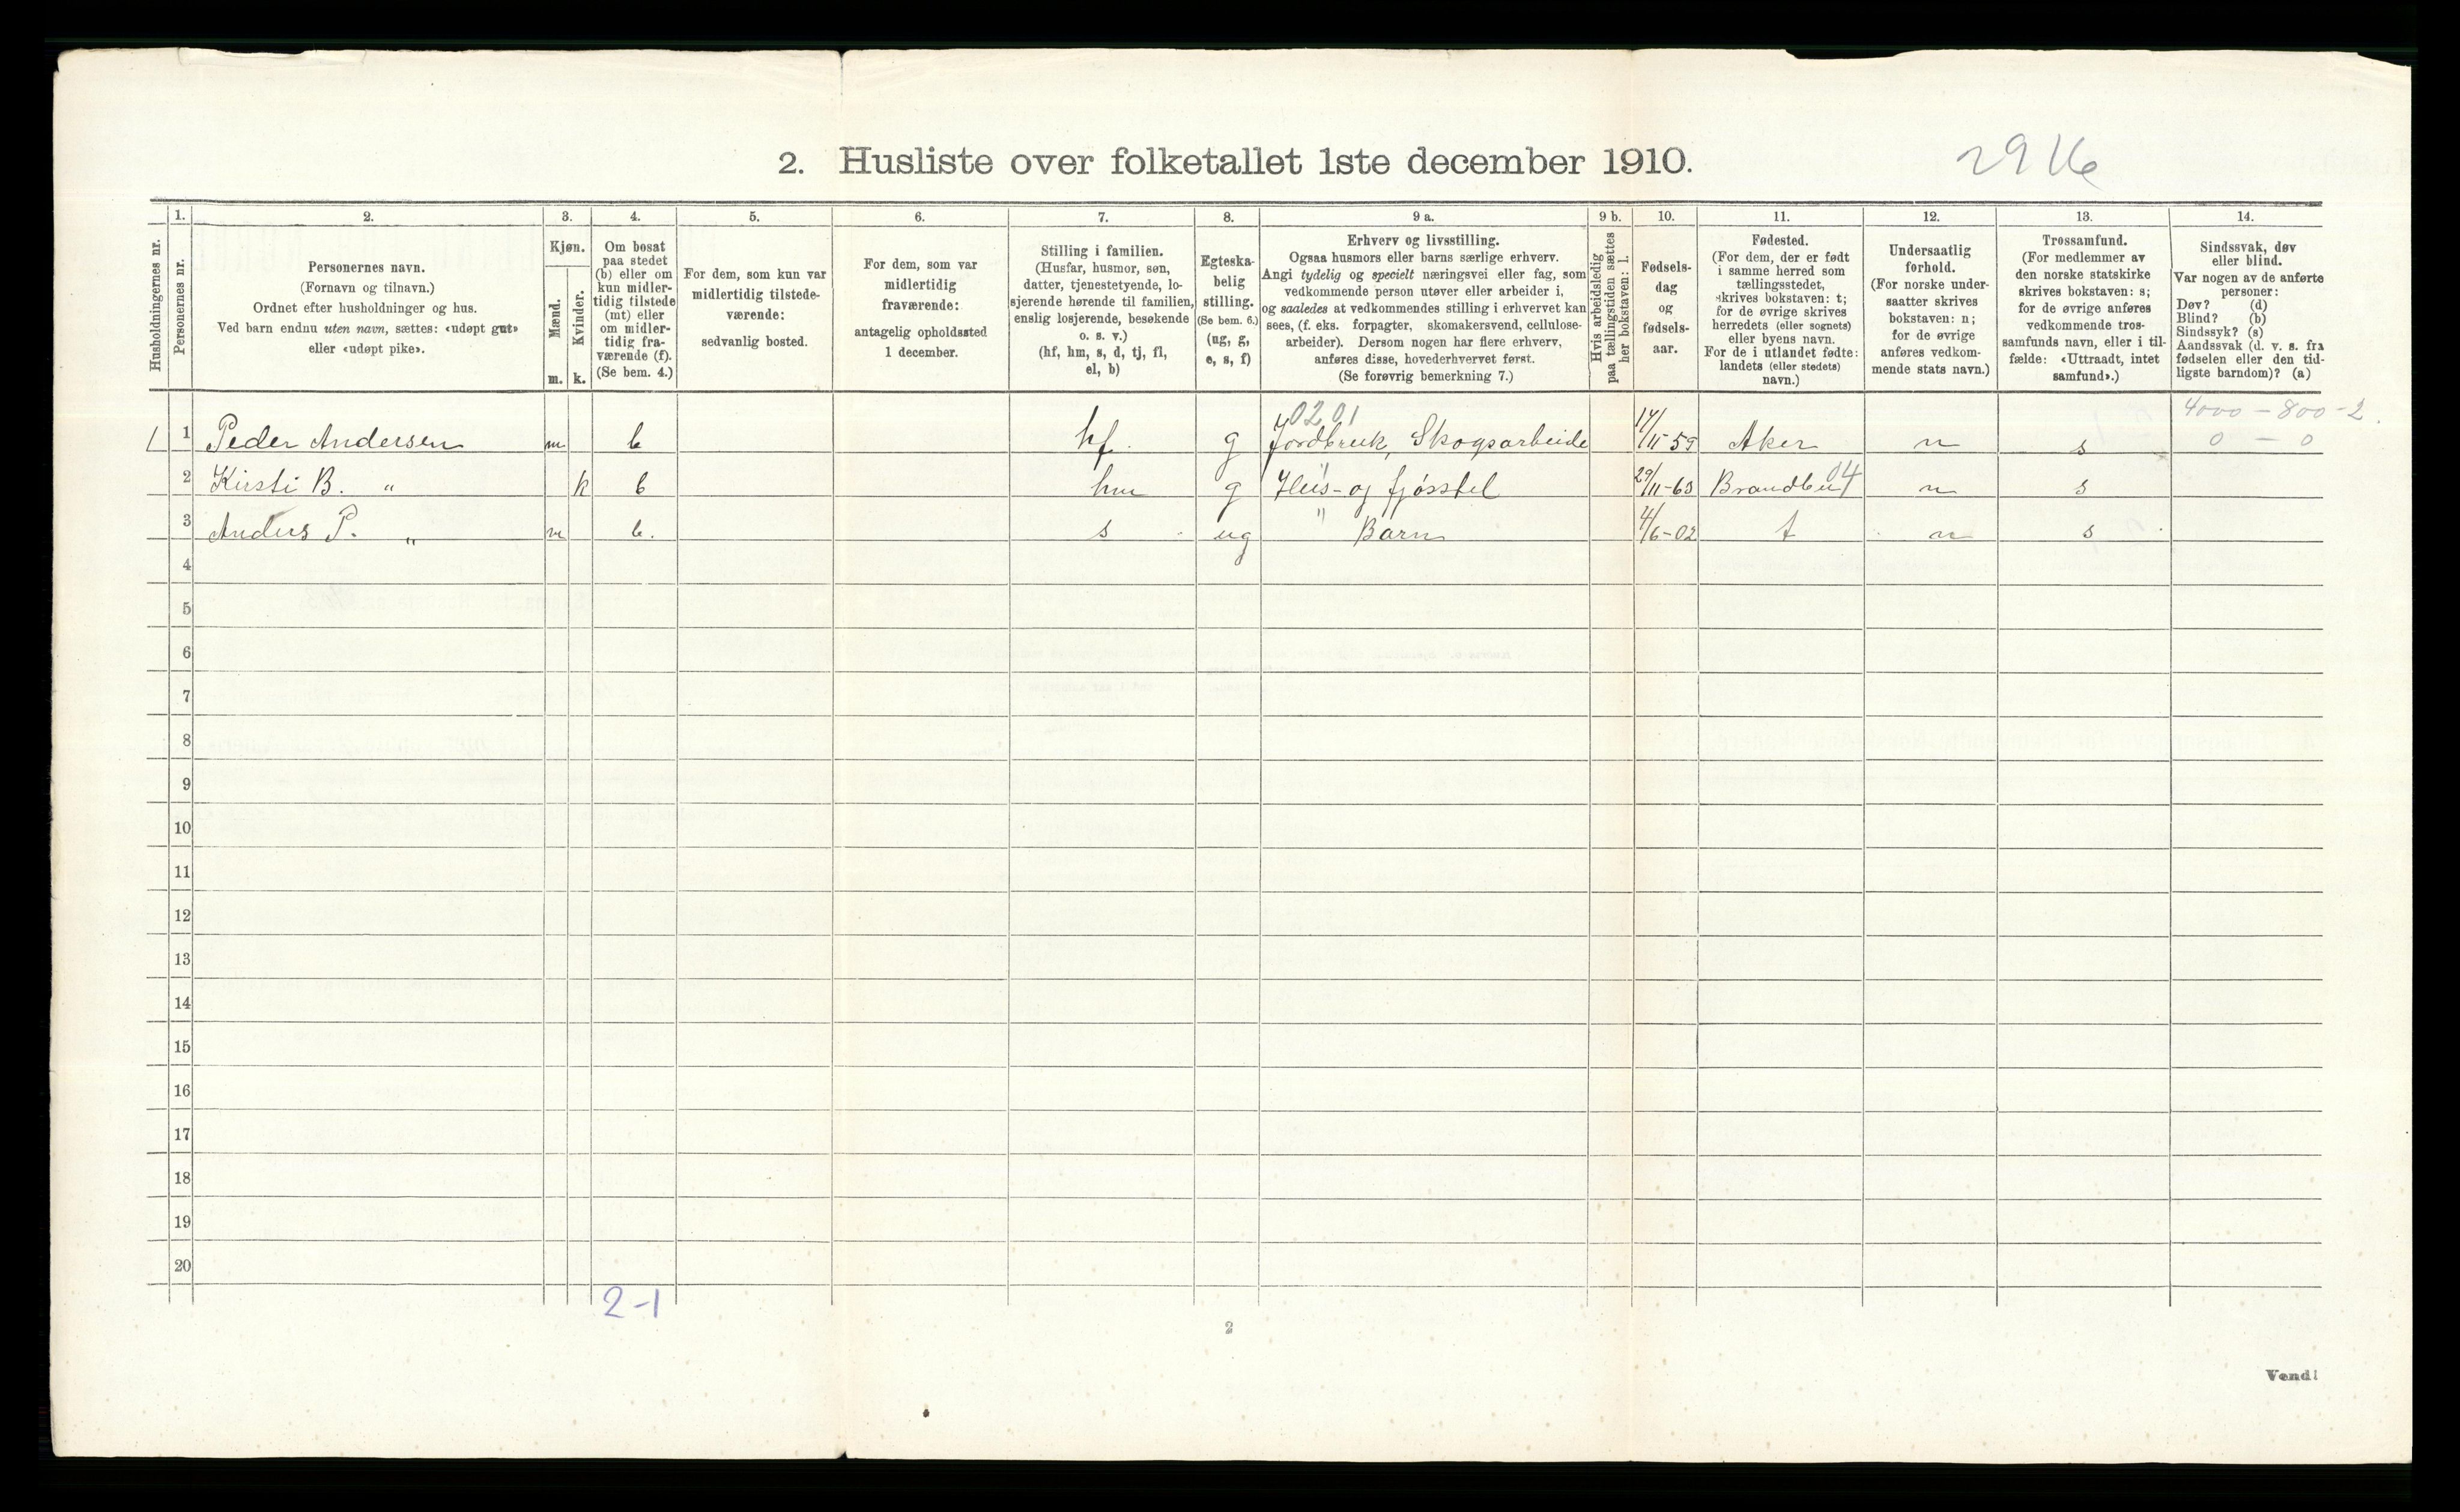 2. Husliste over folketallet 1ste december 1910.
2916
Husholdningernes nr.
1.
Personernes nr.
2.
Personernes navn.
(Fornavn og tilnavn.)
Ordnet efter husholdninger og hus.
Ved barn endnu uten navn, sættes: «udøpt gut»
eller «udøpt pike».
3.
Kjøn.
Mænd.
Kvinder.
m. k.
4.
Om bosat
paa stedet
(b) eller om
kun midler-
tidig tilstede
(mt) eller
om midler-
tidig fra-
værende (f).
(Se bem. 4.)
5.
For dem, som kun var
midlertidig tilstede-
værende:
sedvanlig bosted.
6.
For dem, som var
midlertidig
fraværende:
antagelig opholdssted
1 december.
7.
Stilling i familien.
(Husfar, husmor, søn,
datter, tjenestetyende, lo-
sjerende hørende til familien,
enslig losjerende, besøkende
o. s. v.)
(hf, hm, s, d, tj, fl,
el, b)
8.
Egteska-
belig
stilling.
(Se bem. 6.)
(ug, g,
e, s, f)
9 a.
Erhverv og livsstilling.
Ogsaa husmors eller barns særlige erhverv.
Angi tydelig og specielt næringsvei eller fag, som
vedkommende person utøver eller arbeider i,
og saaledes at vedkommendes stilling i erhvervet kan
sees, (f. eks. forpagter, skomakersvend, cellulose-
arbeider). Dersom nogen har flere erhverv,
anføres disse, hovederhvervet først.
(Se forøvrig bemerkning 7.)
9 b.
Hvis arbeidsledig
paa tællingstiden sættes
her bokstaven: l.
10.
Fødsels-
dag
og
fødsels-
aar.
11.
Fødested.
(For dem, der er født
i samme herred som
tællingsstedet,
skrives bokstaven: t;
for de øvrige skrives
herredets (eller sognets)
eller byens navn.
For de i utlandet fødte:
landets (eller stedets)
navn.)
12.
Undersaatlig
forhold.
(For norske under-
saatter skrives
bokstaven: n;
for de øvrige
anføres vedkom-
mende stats navn.)
13.
Trossamfund.
(For medlemmer av
den norske statskirke
skrives bokstaven: s;
for de øvrige anføres
vedkommende tros-
samfunds navn, eller i til-
fælde: «Uttraadt, intet
samfund».)
14.
Sindssvak, døv
eller blind.
Var nogen av de anførte
personer:
Døv? (d)
Blind? (b)
Sindssyk? (s)
Aandssvak (d. v. s. fra
fødselen eller den tid-
ligste barndom)? (a)
0201
4000 - 800 - 2
1 1 Peder Andersen m b hf. g Jordbruk, Skogsarbeide 17/11-59 Aker n s 0 - 0
2 Kirsti B. " k b hm g Hus- og fjösstel 29/11-63 Brandbu 04 n s
3 Anders P. " m b. s ug " Barn 4/6-02 t n s
4
5
6
7
8
9
10
11
12
13
14
15
16
17
18
19
20
2-1
2
Vend!